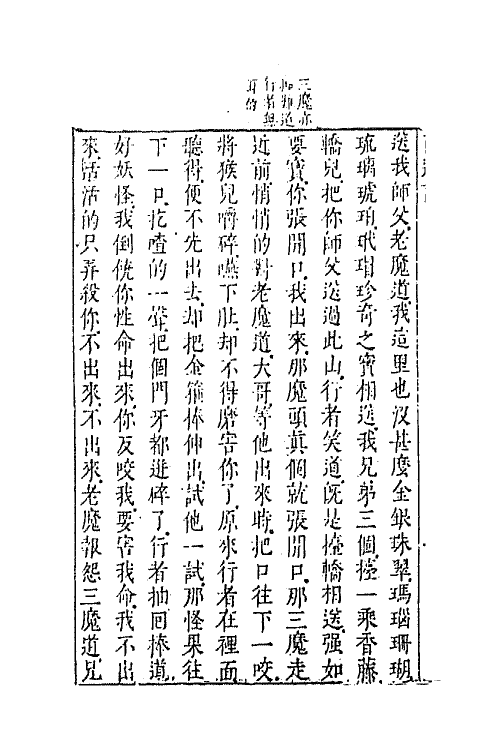 三魔亦
行者無
送我師父老魔道我這里也沒甚麼金銀珠翠瑪瑙珊瑚
琉璃琥珀玳瑁珍奇之寶相送我兄弟三個擡一乘香藤
轎兒把你師父送過此山行者笑道既是擡轎相送强如
要寶你張開口我出來那魔頭真個就張開口那三魔走
近前悄悄的對老魔道大哥等他出來時把口往下一咬
將猴兒嚼碎嚥下肚却不得磨害你了原來行者在裡面
聽得便不先出去却把金箍棒伸出試他一試那怪果往
下一口扢喳的一聲把個門牙都迸碎了行者抽回棒道
好妖怪我倒饒你性命出來你反咬我要害我命我不出
來活活的只弄殺你不出來不出來老魔報怨三魔道兄